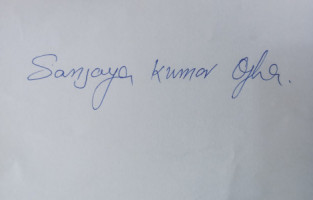 Sanjaya Kumar Ojha.